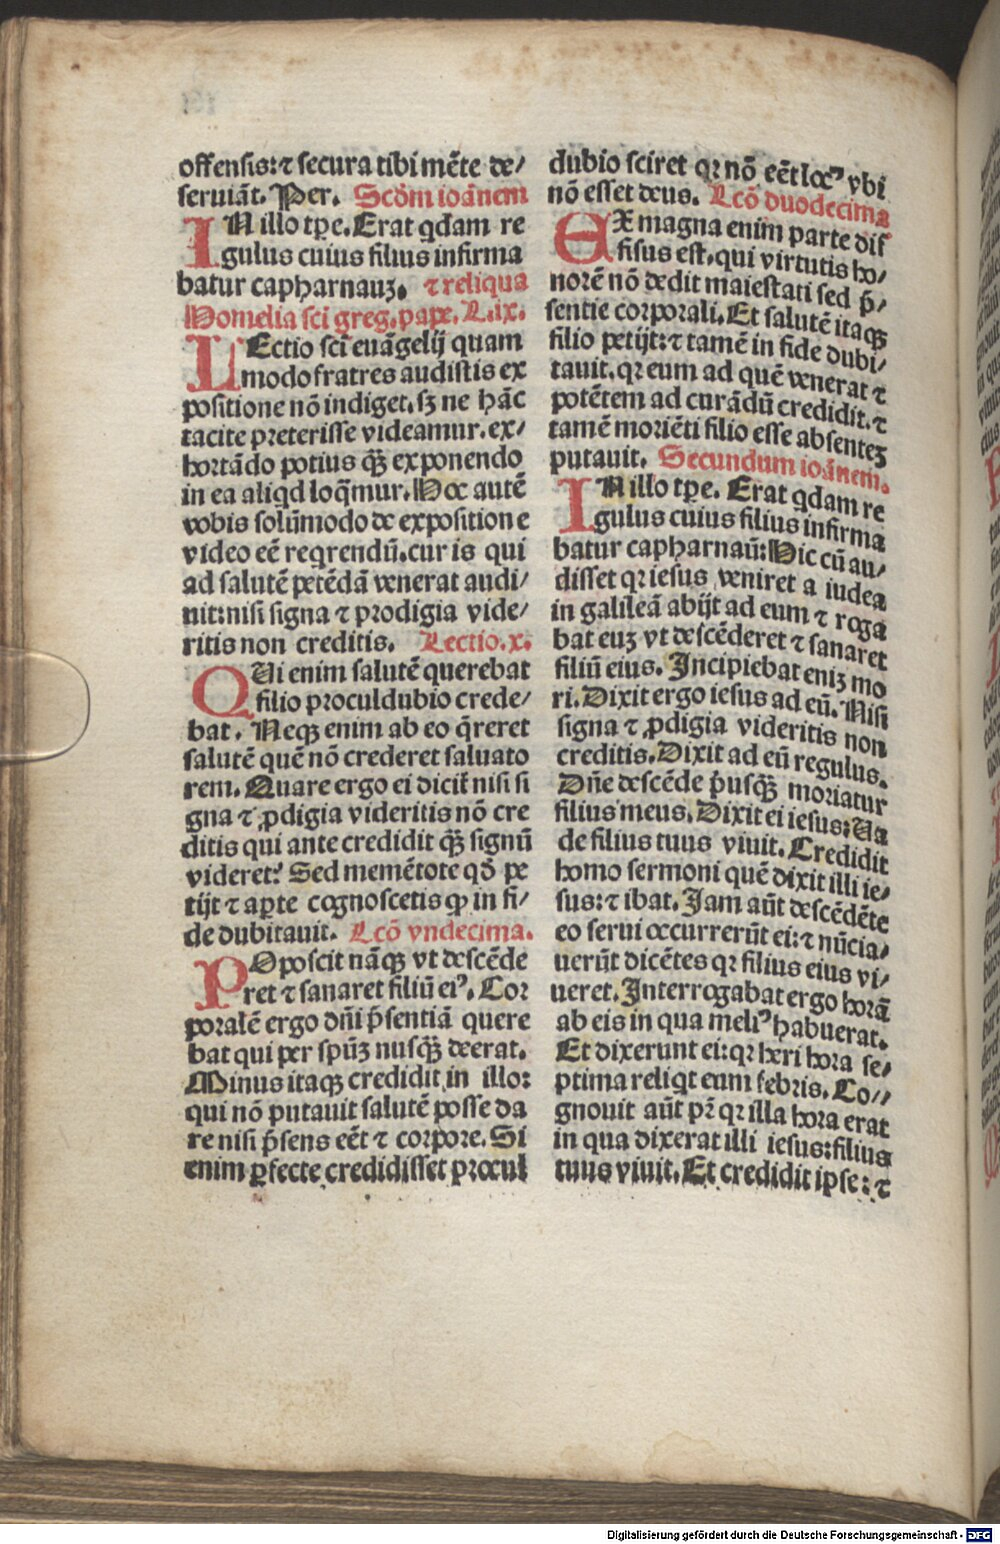 offensis: ⁊ secura tibi mēte de/
seruiāt. Per. Scd̄m ioānem
IN illo tꝑe. Erat qdam re
gulus cuius filius infirma
batur capharnauꝫ. ⁊ reliqua
Homelia sci greg. pape. L.ix.
LEctio sci euāgelij quam
modo fratres audistis ex
positione nō indiget. sꝫ ne hāc
tacite preterisse videamur. ex/
hortādo potius qꝫ̄ exponendo
in ea aliqd loq̄mur. Hoc autē
vobis solūmodo de expositione
video eē reqrendū. cur is qui
ad salutē petēdā venerat audi/
uit: nisi signa ⁊ prodigia vide/
ritis non creditis. Lectio. x.
QUi enim salutē querebat
filio proculdubio crede/
bat. Neqꝫ enim ab eo q̄reret
salutē quē nō crederet saluato
rem. Quare ergo ei dicit̄ nisi si
gna ⁊ ꝓdigia videritis nō cre
ditis qui ante credidit qꝫ̄ signū
videret? Sed memētote qd̄ pe
tijt ⁊ aꝑte cognoscetis ꝙ in fi/
de dubitauit. Lcō vndecima.
POposcit nāqꝫ vt descēde
ret ⁊ sanaret filiū eiꝰ. Cor
poralē ergo dn̄i p̄sentiā quere
bat qui per spūꝫ nusqꝫ̄ deerat.
Minus itaqꝫ credidit in illo:
qui nō putauit salutē posse da
re nisi p̄sens eēt ⁊ corpore. Si
enim ꝑfecte credidisset procul
dubio sciret qꝛ nō eēt locꝰ vbi
nō esset deus. Lcō duodecima
EX magna enim parte dif
fisus est. qui virtutis ho/
norē nō dedit maiestati sed p̄/
sentie corporali. Et salutē itaqꝫ
filio petijt: ⁊ tamē in fide dubi/
tauit. qꝛ eum ad quē venerat ⁊
potētem ad curādū credidit. ⁊
tamē moriēti filio esse absenteꝫ
putauit. Secundum ioānem.
IN illo tꝑe. Erat qdam re
gulus cuius filius infirma
batur capharnaū: Hic cū au/
disset qꝛ iesus veniret a iudea
in galileā abijt ad eum ⁊ roga
bat euꝫ vt descēderet ⁊ sanaret
filiū eius. Incipiebat eniꝫ mo
ri. Dixit ergo iesus ad eū. Nisi
signa ⁊ ꝓdigia videritis non
creditis. Dixit ad eū regulus.
Dn̄e descēde p̄usqꝫ̄ moriatur
filius meus. Dixit ei iesus: Va
de filius tuus viuit. Credidit
homo sermoni quē dixit illi ie/
sus: ⁊ ibat. Jam aūt descēdēte
eo serui occurrerūt ei: ⁊ nūcia/
uerūt dicētes qꝛ filius eius vi/
ueret. Interrogabat ergo horā
ab eis in qua meliꝰ habuerat.
Et dixerunt ei: qꝛ heri hora se/
ptima reliqt eum febris. Co//
gnouit aūt pr̄ qꝛ illa hora erat
in qua dixerat illi iesus: filius
tuus viuit. Et credidit ipse: ⁊
Digitalisierung gefördert durch die Deutsche Forschungsgemeinschaft - DFG